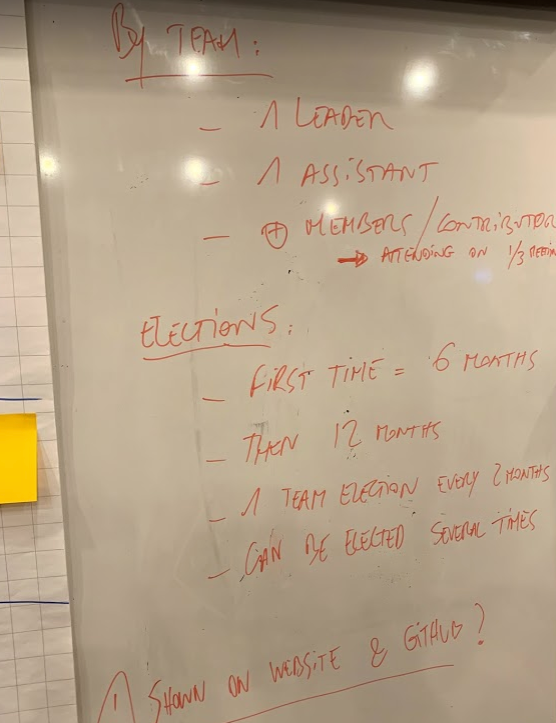 By TEAM:
- 1 LEADER
- 1 ASSiSTANT
- ⊕ MEMBERS / CONTRIBUTOR
→ ATTENDING ON 1/3
ELECTiONS:
- FiRST TIME = 6 MONTHS
- THEN 12 MONTHS
- 1 TEAM ELECTION EVERY 2 MONTHS
- CAN BE ELECTED SEVERAL TIMES
! SHOWN ON WEBSiTE & GiTHUB?